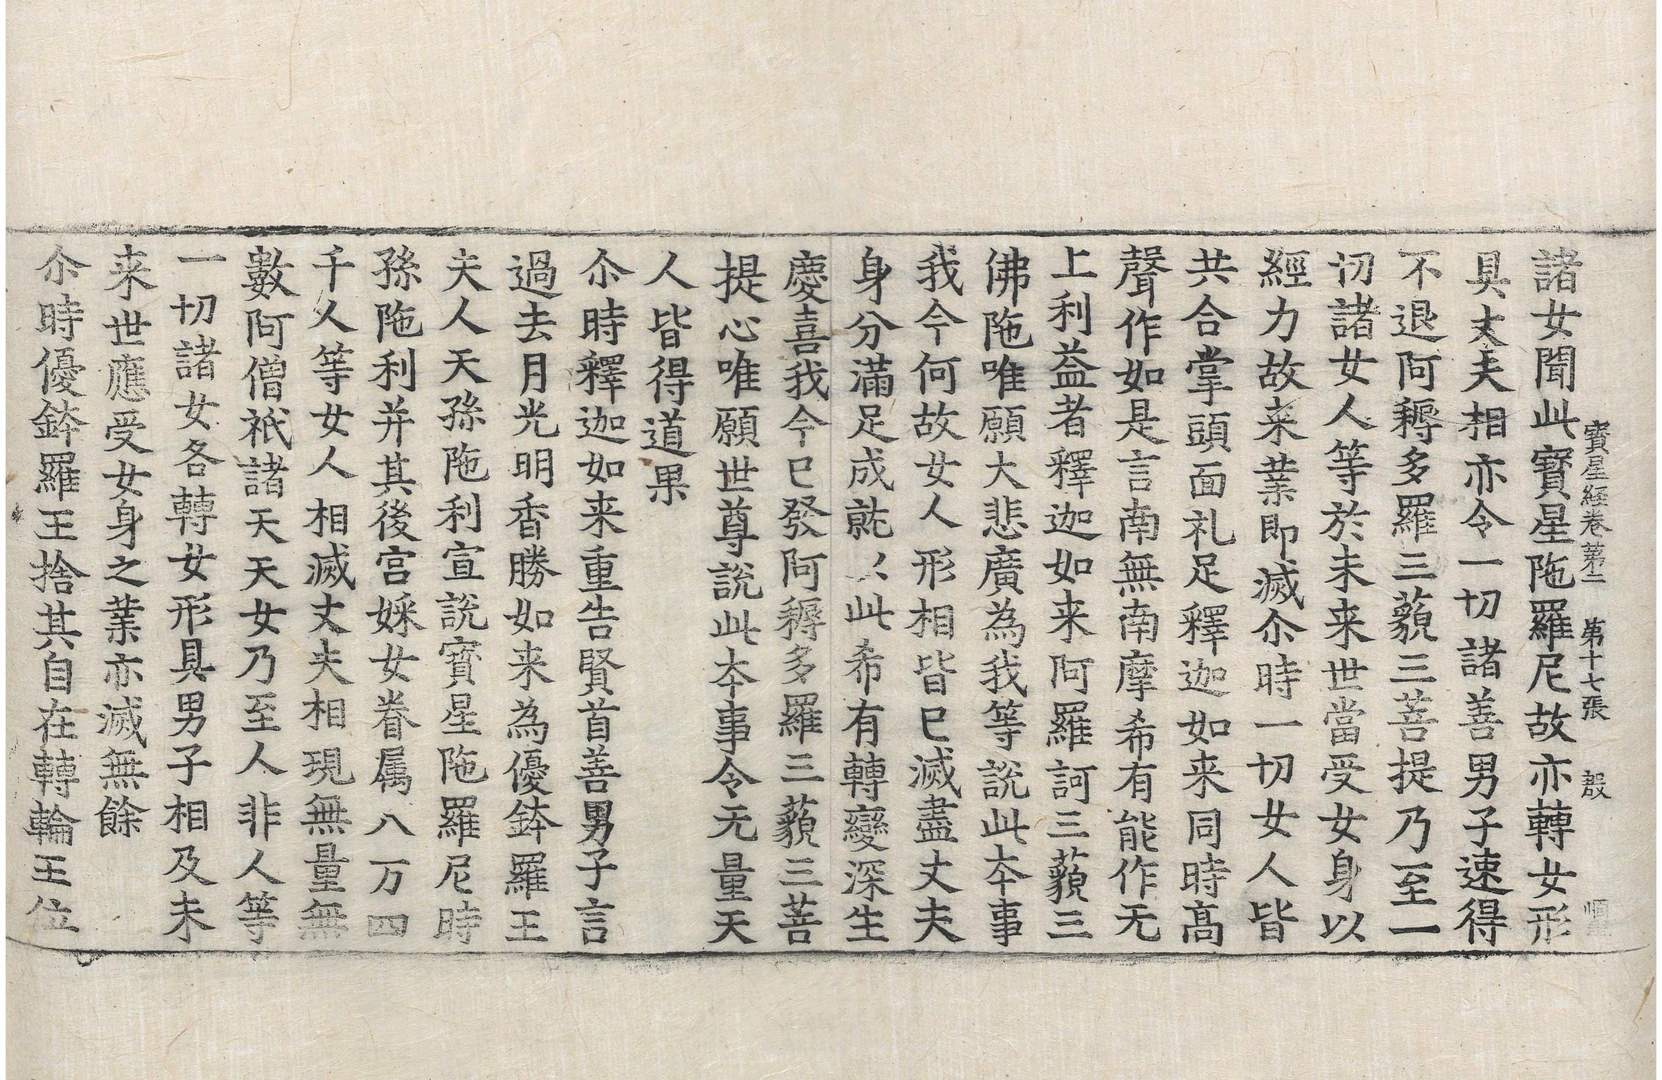 寶星經卷第二 第十七張 殷
諸女聞此寶星陁羅尼故亦轉女形
具丈夫相亦令一切諸善男子速得
不退阿耨多羅三藐三菩提乃至一
切諸女人等於未来世當受女身以
經力故来業即滅尒時一切女人皆
共合掌頭面礼足釋迦如来同時髙
聲作如是言南無南摩希有能作无
上利益者釋迦如来阿羅訶三藐三
佛陁唯願大悲廣為我等說此夲事
我今何故女人形相皆已滅盡丈夫
身分滿足成就以此希有轉變深生
慶喜我今已發阿耨多羅三藐三菩
提心唯願世尊說此夲事令无量天
人皆得道果
尒時釋迦如来重告賢首善男子言
過去月光明香勝如来為優鉢羅王
夫人天孫陁利宣說寶星陁羅尼時
孫陁利并其後宮婇女眷属八万四
千久等女人相滅丈夫相現無量無
數阿僧祇諸天天女乃至人非人等
一切諸女各轉女形具男子相及未
来世應受女身之業亦滅無餘
尒時優鉢羅王捨其自在轉輪王位